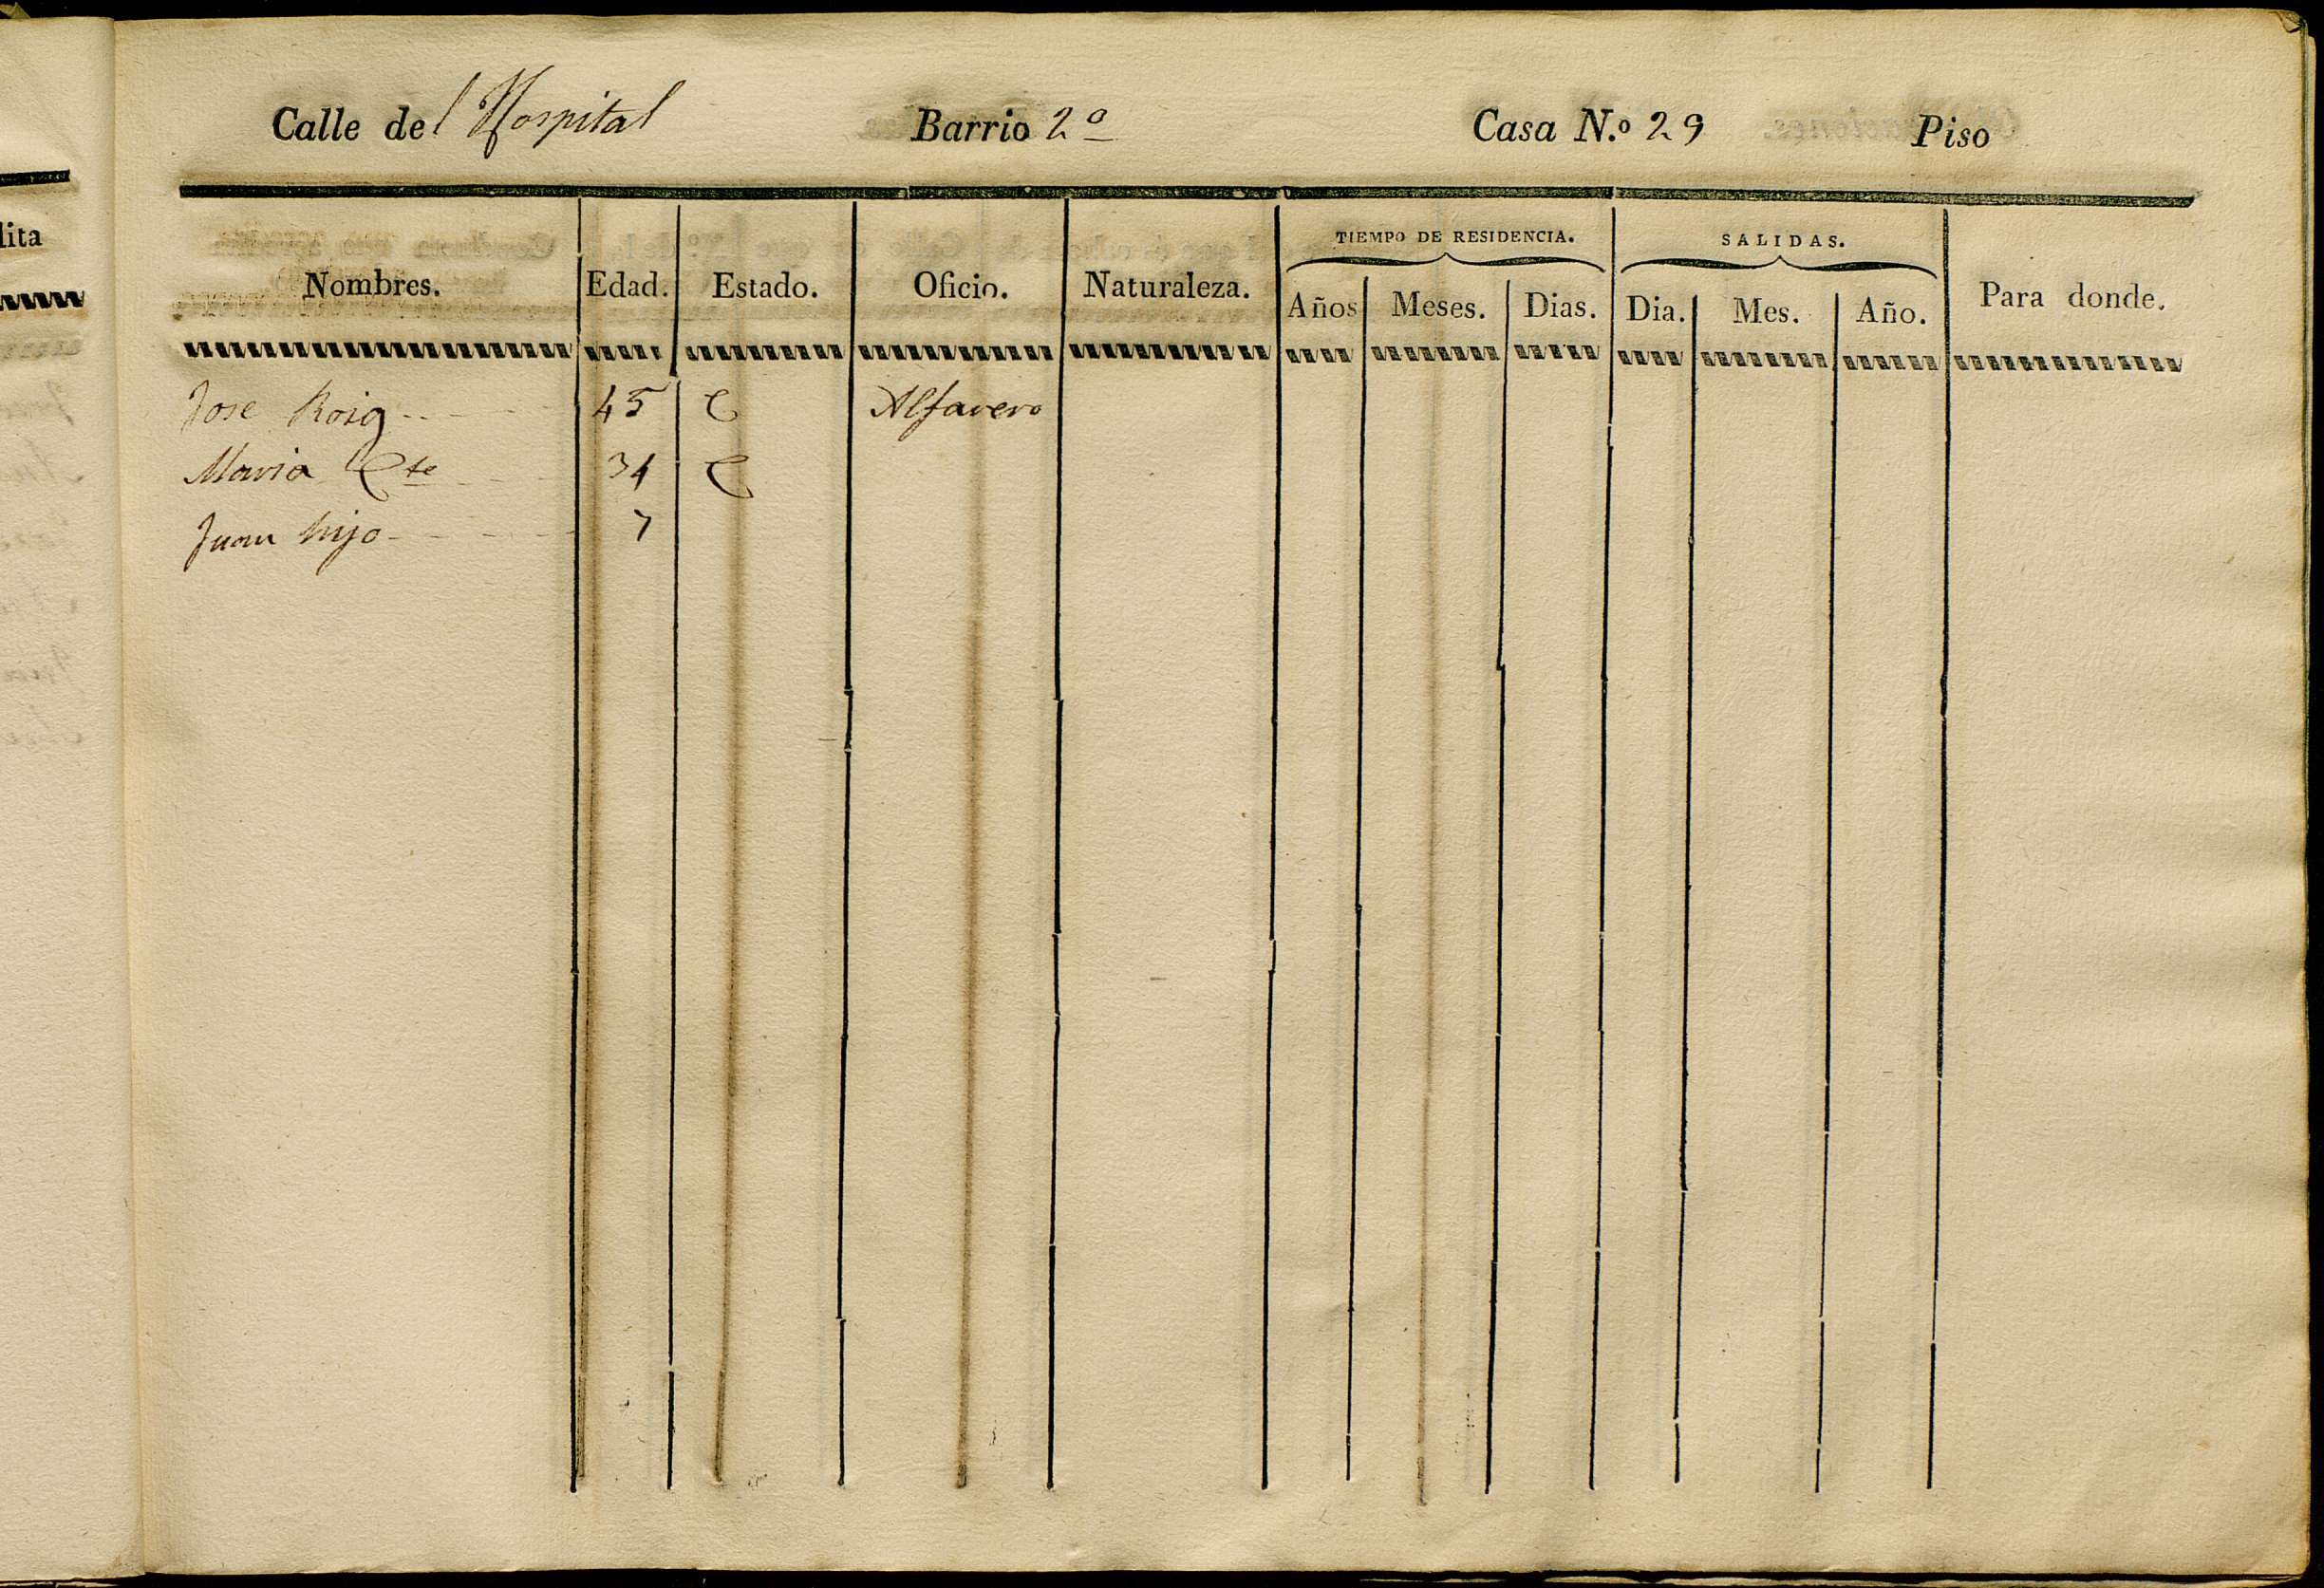 Calle del Hospital Barrio 2º Casa N.º 29 Piso
lita
TIEMPO DE RESIDENCIA. SALIDAS.
Nombres. Edad. Estado. Oficio. Naturaleza. Años Meses. Dias. Dia. Mes. Año. Para donde.
Jose Roig 45 C Alfarero
Maria Cte 34 C
Juan hijo 7